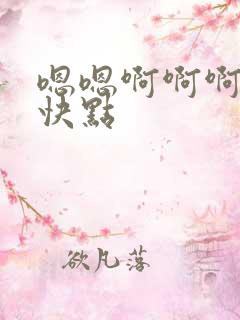 嗯嗯啊啊啊
快點
欲凡落